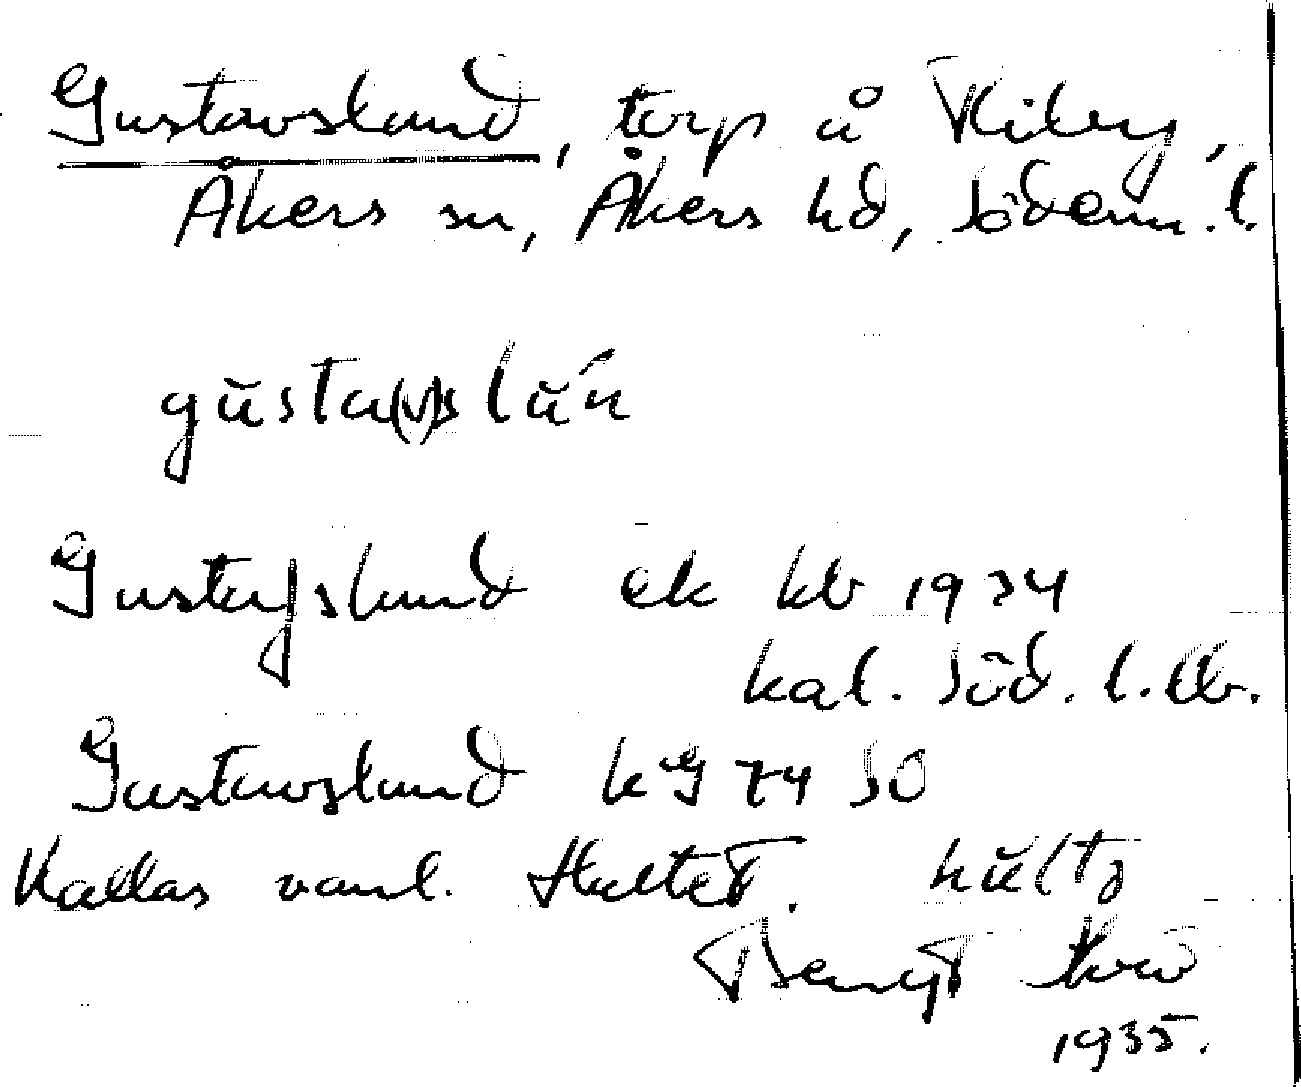 Gustavslund, torp å Kiby,
Åkers sn, Åkers hd, Söderm. l.
gŭsta(v)slŭ́n
Gustafslund ek kb 1934
kal. Söd. l. lb.
Gustavslund kG 74 SO
Kallas vanl. Hultet. hŭltə
Bengt
1935.